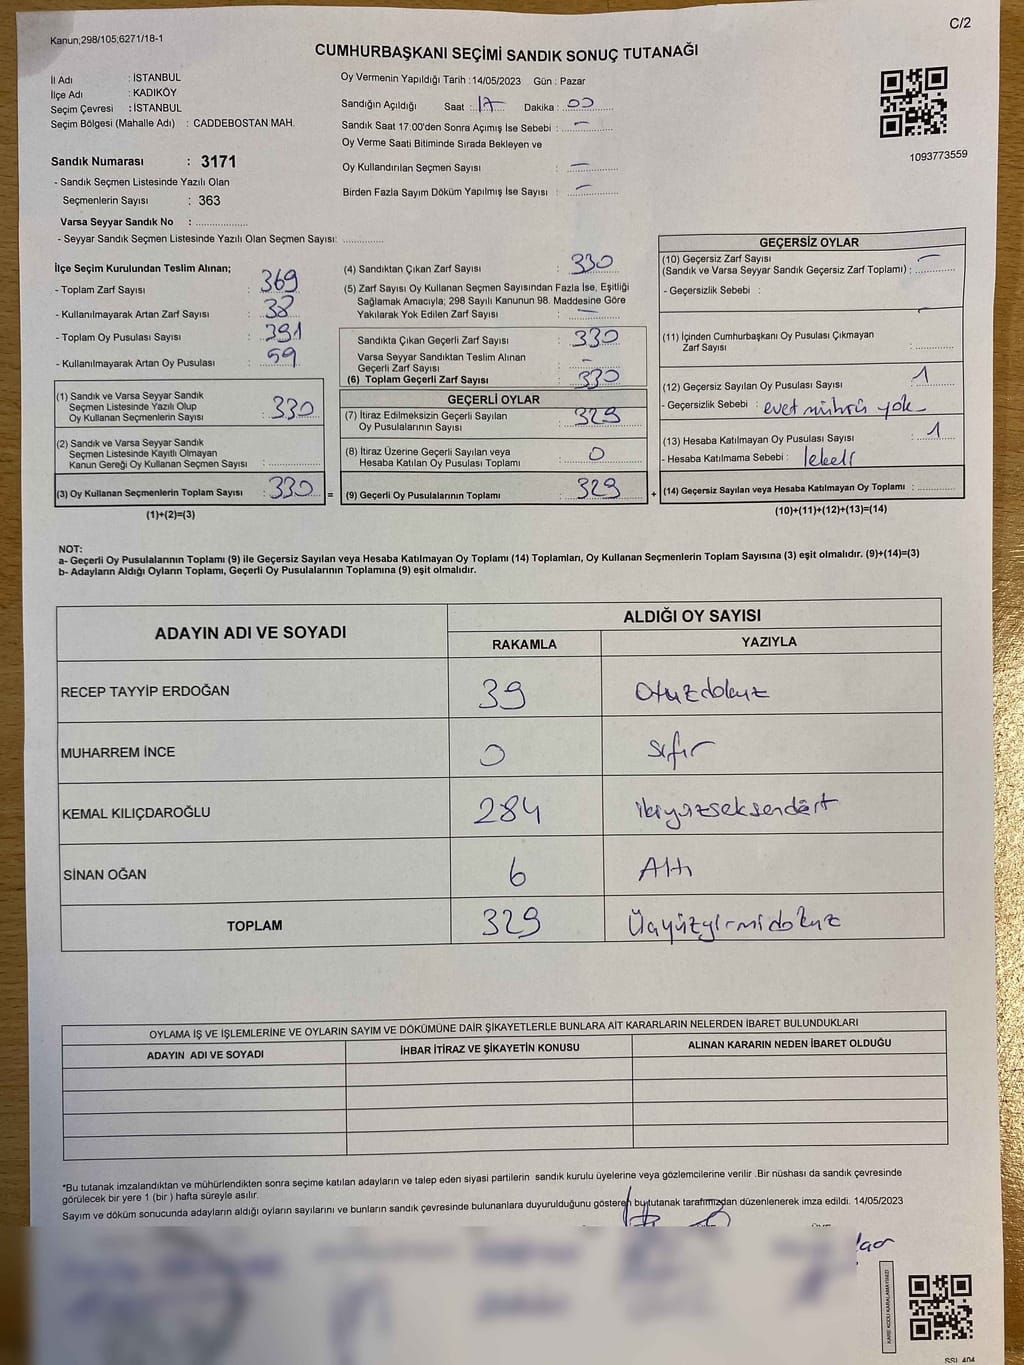 C/2
Kanun;298/105;6271/18-1
CUMHURBAŞKANI SEÇİMİ SANDIK SONUÇ TUTANAĞI
İl Adı : İSTANBUL
İlçe Adı : KADIKÖY
Seçim Çevresi : İSTANBUL
Seçim Bölgesi (Mahalle Adı) : CADDEBOSTAN MAH.
Sandık Numarası : 3171
- Sandık Seçmen Listesinde Yazılı Olan
Seçmenlerin Sayısı : 363
Varsa Seyyar Sandık No : ..................
- Seyyar Sandık Seçmen Listesinde Yazılı Olan Seçmen Sayısı: ..............
Oy Vermenin Yapıldığı Tarih :14/05/2023 Gün : Pazar
Sandığın Açıldığı Saat : 17 Dakika : 00
Sandık Saat 17:00'den Sonra Açımış İse Sebebi : —
Oy Verme Saati Bitiminde Sırada Bekleyen ve
Oy Kullandırılan Seçmen Sayısı : —
Birden Fazla Sayım Döküm Yapılmış İse Sayısı : —
1093773559
İlçe Seçim Kurulundan Teslim Alınan;
- Toplam Zarf Sayısı : 369
- Kullanılmayarak Artan Zarf Sayısı : 38
- Toplum Oy Pusulası Sayısı : 391
- Kullanılmayarak Artan Oy Pusulası : 59
(1) Sandık ve Varsa Seyyar Sandık
Seçmen Listesinde Yazılı Olup
Oy Kullanan Seçmenlerin Sayısı : 330
(2) Sandık ve Varsa Seyyar Sandık
Seçmen Listesinde Kayıtlı Olmayan
Kanun Gereği Oy Kullanan Seçmen Sayısı : ..............
(3) Oy Kullanan Seçmenlerin Toplam Sayısı : 330 =
(1)+(2)=(3)
(4) Sandıktan Çıkan Zarf Sayısı : 330
(5) Zarf Sayısı Oy Kullanan Seçmen Sayısından Fazla İse, Eşitliği
Sağlamak Amacıyla; 298 Sayılı Kanunun 98. Maddesine Göre
Yakılarak Yok Edilen Zarf Sayısı : —
Sandıkta Çıkan Geçerli Zarf Sayısı : 330
Varsa Seyyar Sandıktan Teslim Alınan
Geçerli Zarf Sayısı : —
(6) Toplam Geçerli Zarf Sayısı : 330
GEÇERLİ OYLAR
(7) İtiraz Edilmeksizin Geçerli Sayılan
Oy Pusulalarının Sayısı : 329
(8) İtiraz Üzerine Geçerli Sayılan veya
Hesaba Katılan Oy Pusulası Toplamı : 0
(9) Geçerli Oy Pusulalarının Toplamı : 329 +
GEÇERSİZ OYLAR
(10) Geçersiz Zarf Sayısı
(Sandık ve Varsa Seyyar Sandık Geçersiz Zarf Toplamı) : —
- Geçersizlik Sebebi :
(11) İçinden Cumhurbaşkanı Oy Pusulası Çıkmayan
Zarf Sayısı : ............
(12) Geçersiz Sayılan Oy Pusulası Sayısı : 1
- Geçersizlik Sebebi : evet mührü yok
(13) Hesaba Katılmayan Oy Pusulası Sayısı : 1
- Hesaba Katılmama Sebebi : lekeli
(14) Geçersiz Sayılan veya Hesaba Katılmayan Oy Toplamı : ............
(10)+(11)+(12)+(13)=(14)
NOT:
a- Geçerli Oy Pusulalarının Toplamı (9) ile Geçersiz Sayılan veya Hesaba Katılmayan Oy Toplamı (14) Toplamları, Oy Kullanan Seçmenlerin Toplam Sayısına (3) eşit olmalıdır. (9)+(14)=(3)
b- Adayların Aldığı Oyların Toplamı, Geçerli Oy Pusulalarının Toplamına (9) eşit olmalıdır.
ADAYIN ADI VE SOYADI
ALDIĞI OY SAYISI
RAKAMLA YAZIYLA
RECEP TAYYİP ERDOĞAN 39 Otuzdokuz
MUHARREM İNCE 0 Sıfır
KEMAL KILIÇDAROĞLU 284 ikiyüzseksendört
SİNAN OĞAN 6 Altı
TOPLAM 329 Üçyüzyirmidokuz
OYLAMA İŞ VE İŞLEMLERİNE VE OYLARIN SAYIM VE DÖKÜMÜNE DAİR ŞİKAYETLERLE BUNLARA AİT KARARLARIN NELERDEN İBARET BULUNDUKLARI
ADAYIN ADI VE SOYADI İHBAR İTİRAZ VE ŞİKAYETİN KONUSU ALINAN KARARIN NEDEN İBARET OLDUĞU
*Bu tutanak imzalandıktan ve mühürlendikten sonra seçime katılan adayların ve talep eden siyasi partilerin sandık kurulu üyelerine veya gözlemcilerine verilir .Bir nüshası da sandık çevresinde
görülecek bir yere 1 (bir ) hafta süreyle asılır.
Sayım ve döküm sonucunda adayların aldığı oyların sayılarını ve bunların sandık çevresinde bulunanlara duyurulduğunu gösteren bu tutanak tarafımızdan düzenlenerek imza edildi. 14/05/2023
KARE KODU KARALAMAYINIZ!